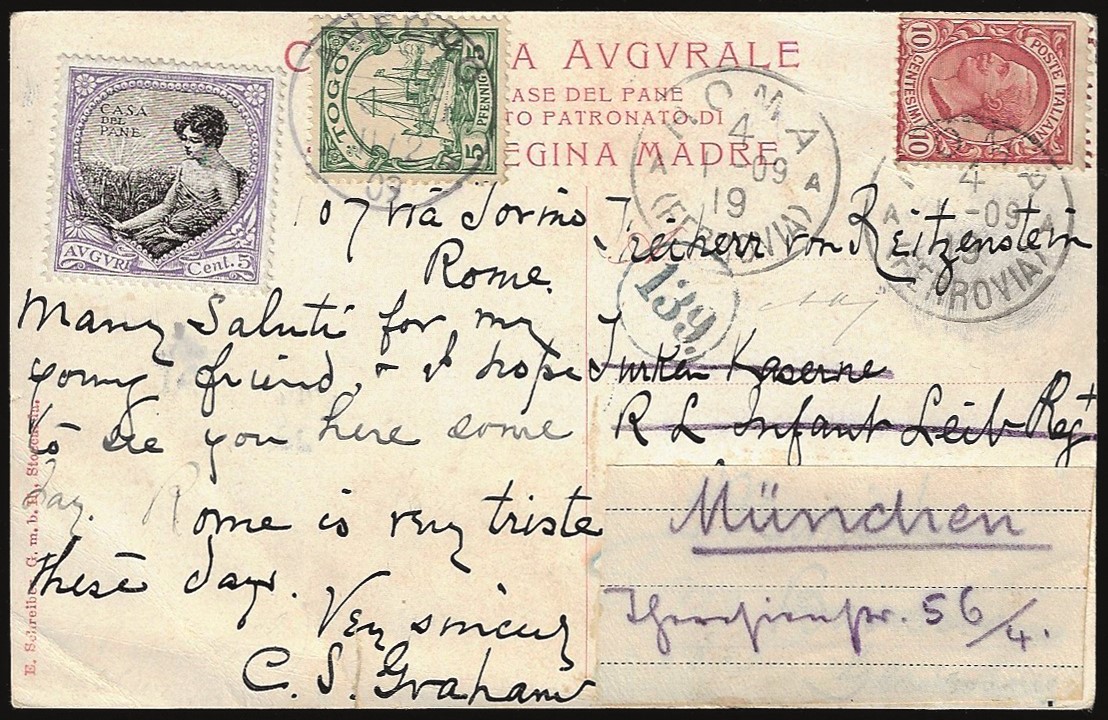 A AVGVRALE
ASE DEL PANE
TO PATRONATO DI
EGINA MADRE
CASA
DEL
PANE
AVGVRI
Cent. 5
TOGO
5
PFENNIG
5
09
ROMA
4
1 - 09
19
A A
(FERROVIA)
10 CENTESIMI 10
POSTE ITALIANE
4
-09
A A
(FERROVIA)
139.
107 via Torino
Rome.
Many Saluti for my
young friend, & I hope
to see you here some
day. Rome is very triste
these days.
Very sincerely
C. S. Graham
Freiherr von Reitzenstein
Türken Kaserne
R L Infant Leib Regt
München
Theresienstr. 56/4.
E. Schreiber G. m. b. H., Stuttgart